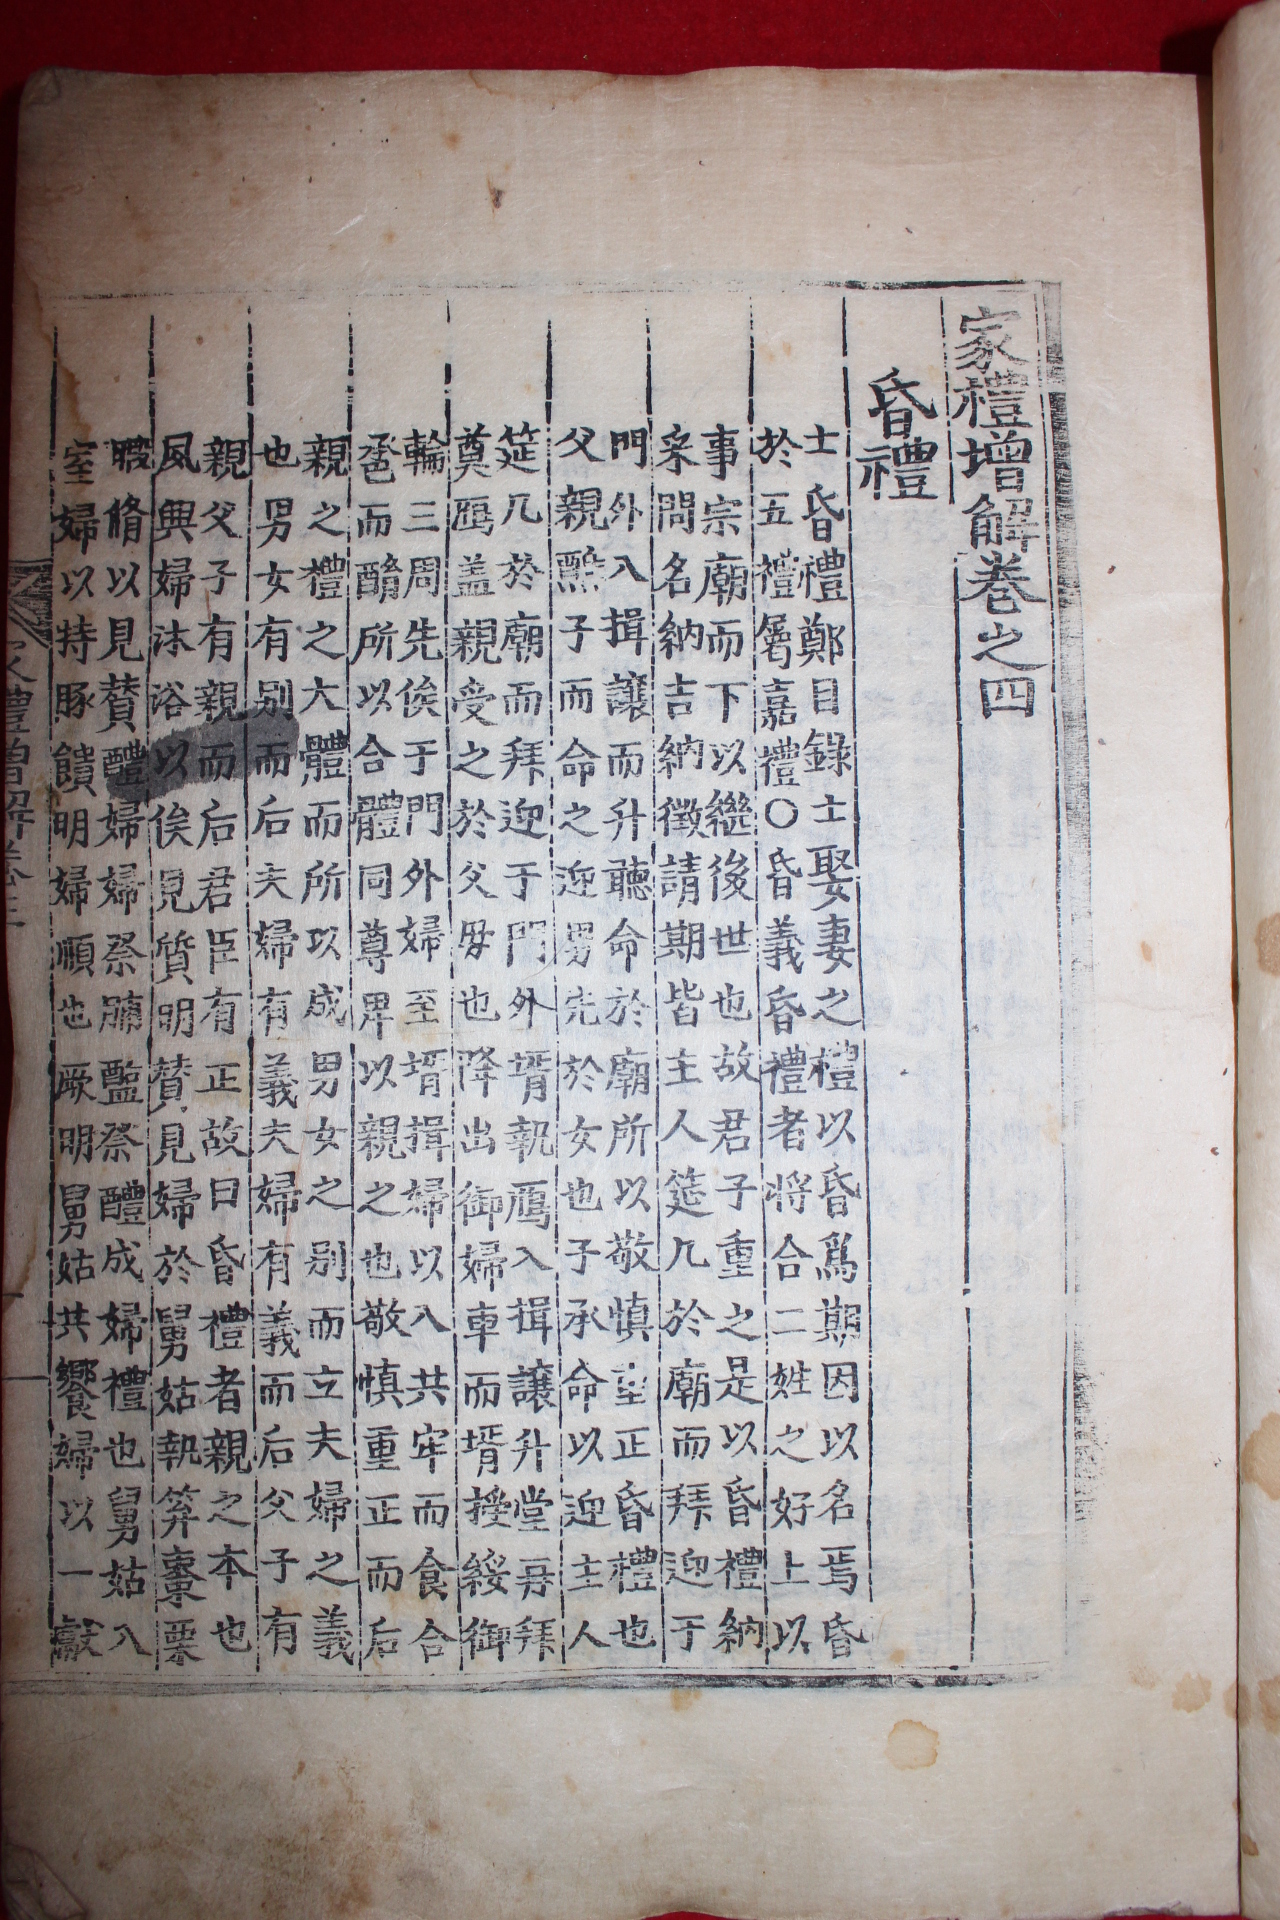 家禮增解卷之四
昏禮
士昏禮鄭目錄士娶妻之禮以昏爲期因以名焉昏
於五禮屬嘉禮○昏義昏禮者將合二姓之好上以
事宗廟而下以繼後世也故君子重之是以昏禮納
采問名納吉納徵請期皆主人筵几於廟而拜迎于
門外入揖讓而升聽命於廟所以敬慎重正昏禮也
父親醮子而命之迎男先於女也子承命以迎主人
筵几於廟而拜迎于門外壻執鴈入揖讓升堂再拜
奠鴈盖親受之於父母也降出御婦車而壻授綏御
輪三周先俟于門外婦至壻揖婦以入共牢而食合
巹而酳所以合體同尊卑以親之也敬慎重正而后
親之禮之大體而所以成男女之别而立夫婦之義
也男女有别而后夫婦有義夫婦有義而后父子有
親父子有親而后君臣有正故曰昏禮者親之本也
夙興婦沐浴以俟見質明贊見婦於舅姑執笲棗栗
腶脩以見贊醴婦婦祭脯醢祭醴成婦禮也舅姑入
室婦以特豚饋明婦順也厥明舅姑共饗婦以一獻
家禮增解卷